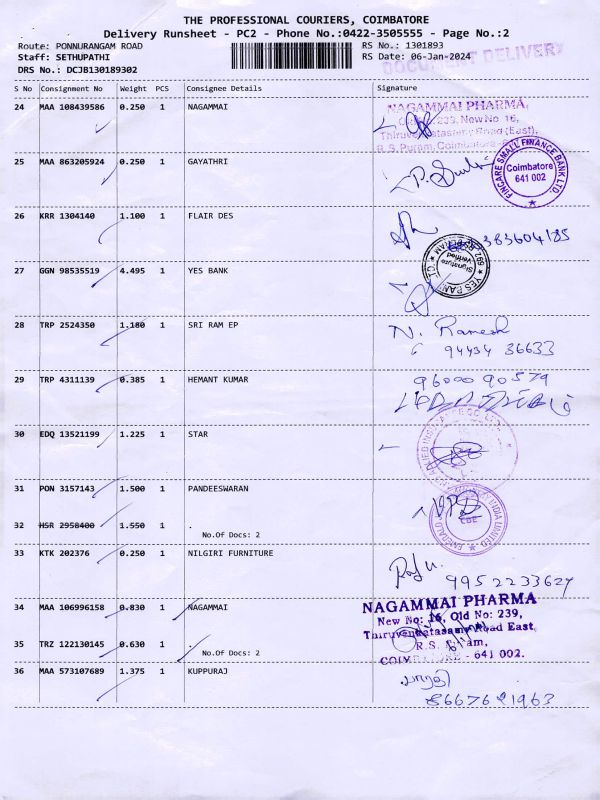 THE PROFESSIONAL COURIERS, COIMBATORE
Delivery Runsheet - PC2 - Phone No.:0422-3505555 - Page No.:2
Route: PONNURANGAM ROAD RS No.: 1301893
Staff: SETHUPATHI RS Date: 06-Jan-2024
DOCUMENT DELIVERY
DRS No.: DCJB130189302
S No Consignment No Weight PCS Consignee Details Signature
24 MAA 108439586 0.250 1 NAGAMMAI
NAGAMMAI PHARMA,
Old No. 239, New No. 16,
Thiruvenkatasamy Road (East),
R.S. Puram, Coimbatore
25 MAA 863205924 0.250 1 GAYATHRI
FINCARE SMALL FINANCE BANK LTD.
Coimbatore
641 002
26 KRR 1304140 1.100 1 FLAIR DES
383604185
27 GGN 98535519 4.495 1 YES BANK
YES BANK
Signature
Verified
28 TRP 2524350 1.180 1 SRI RAM EP
N. Ramesh
94434 36633
29 TRP 4311139 0.385 1 HEMANT KUMAR
96000 90579
30 EDQ 13521199 1.225 1 STAR
31 PON 3157143 1.500 1 PANDEESWARAN
32 HSR 2958400 1.550 1 No.Of Docs: 2
INDIA LIMITED
CBE
33 KTK 202376 0.250 1 NILGIRI FURNITURE
9952233627
34 MAA 106996158 0.830 1 NAGAMMAI
NAGAMMAI PHARMA
New No: 16, Old No: 239,
Thiruvenkatasamy Road East,
R.S. Puram,
COIMBATORE - 641 002.
35 TRZ 122130145 0.630 1 No.Of Docs: 2
36 MAA 573107689 1.375 1 KUPPURAJ
8667621963